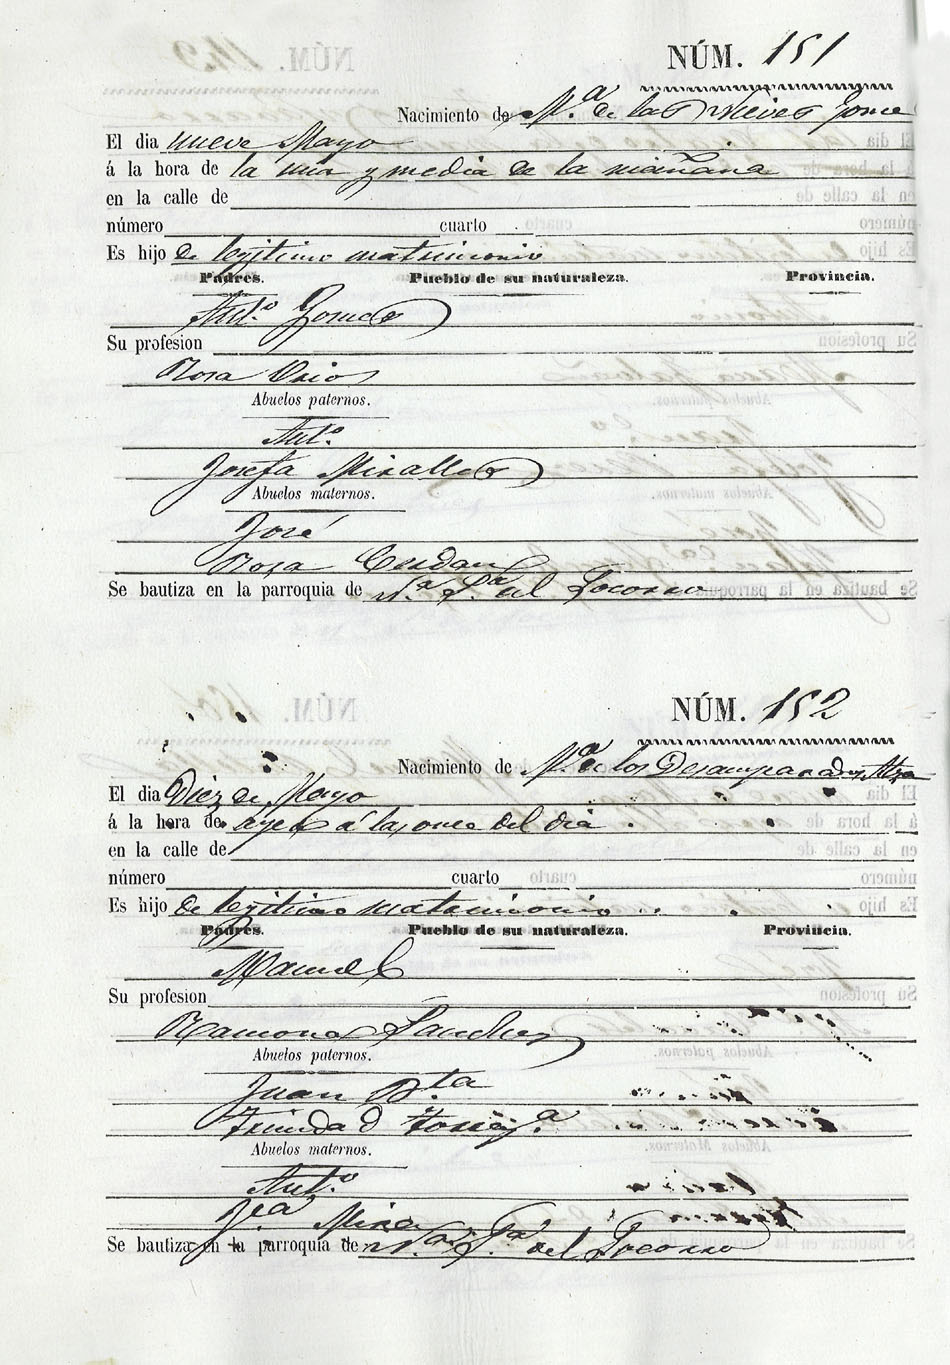 NÚM. 151
Nacimiento de Mª. de las Nieves
El dia nueve Mayo
á la hora de la una y media de la mañana
en la calle de
número cuarto
Es hijo de legitimo matrimonio
Padres. Pueblo de su naturaleza. Provincia.
Antº
Su profesion
Rosa
Abuelos paternos.
Antº
Josefa Miralles
Abuelos maternos.
José
Rosa Cerdan
Se bautiza en la parroquia de Nª. Sª. del Socorro
NÚM. 152
Nacimiento de Mª de los Desamparados
El dia Diez de Mayo
á la hora de ayer á las once del dia
en la calle de
número cuarto
Es hijo de legitimo matrimonio
Padres. Pueblo de su naturaleza. Provincia.
Manuel
Su profesion
Ramona Sanchez
Abuelos paternos.
Juan Bta
Trinidad
Abuelos maternos.
Antº
Jª Mira
Se bautiza en la parroquia de Nª Sª del Socorro